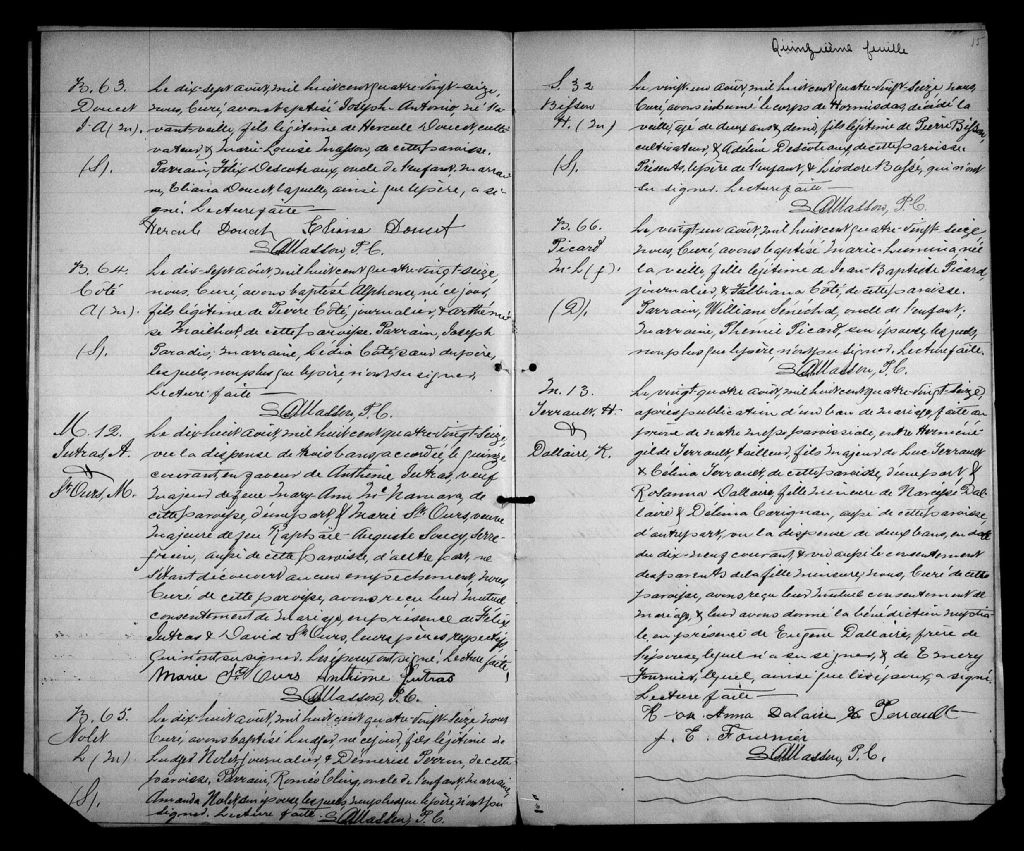 B. 63
Doucet
J-A (m)
(S).
Le dix-sept août, mil huit cent quatre-vingt-seize,
nous, Curé, avons baptisé Joseph-Antonio, né l'a-
vant-veille, fils légitime de Hercule Doucet, culti-
vateur, & Marie-Louise Masson, de cette paroisse.
Parrain, Félix Descoteaux, oncle de l'enfant, marrai-
ne, Eliana Doucet, laquelle, ainsi que le père, a si-
gné. Lecture faite —
Hercule Doucet Eliana Doucet
Masson, P.C.
B. 64
Côté
A (m).
(S).
Le dix-sept août, mil huit cent quatre-vingt-seize,
nous, Curé, avons baptisé Alphonse, né ce jour,
fils légitime de Pierre Côté, journalier, & Arthémi-
se Mailhot de cette paroisse. Parrain, Joseph
Paradis, marraine, Lédia Côté, sœur du père,
lesquels, non plus que le père, n'ont su signer.
Lecture faite —
Masson, P.C.
M. 12.
Jutras, A.
&
St Ours, M.
Le dix-huit août, mil huit cent quatre-vingt-seize,
vu la dispense de trois bans, accordée le quinze
courant, en faveur de Anthime Jutras, veuf
majeur de feue Mary Ann McNamara, de
cette paroisse, d'une part & Marie St Ours, veuve
majeure de feu Raphaël-Auguste Soucy,
aussi de cette paroisse, d'autre part, ne
s'étant découvert aucun empêchement, nous,
Curé de cette paroisse, avons reçu leur mutuel
consentement de mariage, en présence de Félix
Jutras & David St Ours, leurs pères respectifs,
qui n'ont su signer. Les époux ont signé. Lecture faite
Marie St Ours Anthime Jutras
Masson, P.C.
B. 65
Nolet
L (m)
(S).
Le dix-huit août, mil huit cent quatre-vingt-seize, nous
Curé, avons baptisé Ludger, né ce jour, fils légitime de
Ludger Nolet, journalier, & Démerise Perrin, de cette
paroisse. Parrain, Roméo, oncle de l'enfant, marraine,
Amanda Nolet, son épouse, lesquels, non plus que le père, n'ont pu
signer. Lecture faite. Masson, P.C.
Quinzième feuille
15
S. 32
Bisson
H. (m)
(S).
Le vingt-un août, mil huit cent quatre-vingt-seize, nous,
Curé, avons inhumé le corps de Hormisdas, décédé la
veille, âgé de deux ans & demi, fils légitime de Pierre Bisson,
cultivateur, & Adéline Descoteaux, de cette paroisse.
Présents, le père de l'enfant, & Léodore, qui n'ont
su signer. Lecture faite —
Masson, P.C.
B. 66
Picard
M-L (f).
(D).
Le vingt-un août, mil huit cent quatre-vingt-seize,
nous, Curé, avons baptisé Marie-Lumina, née
la veille, fille légitime de Jean-Baptiste Picard,
journalier, & Fabiana Côté, de cette paroisse.
Parrain, William Sénéchal, oncle de l'enfant;
marraine, Phémie Picard, son épouse, lesquels,
non plus que le père, n'ont pu signer. Lecture faite.
Masson, P.C.
M. 13
Perrault, H.
&
Dallaire, R.
Le vingt-quatre août, mil huit cent quatre-vingt-seize,
après publication d'un ban de mariage, faite au
prône de notre messe paroissiale, entre Herméné-
gilde Perrault, tailleur, fils majeur de Luc Perrault
& Célina Perrault, de cette paroisse, d'une part, &
Rosanna Dallaire, fille mineure de Narcisse Dal-
laire & Délima Carignan, aussi de cette paroisse,
d'autre part, vu la dispense de deux bans, en date
du dix-neuf courant, & vu aussi le consentement
des parents de la fille mineure; nous, Curé de cette
paroisse, avons reçu leur mutuel consentement de
mariage, & leur avons donné la bénédiction nuptia-
le en présence de Eugène Dallaire, frère de
l'épouse, lequel n'a su signer, & de Emery
Fournier, lequel, ainsi que les époux, a signé.
Lecture faite —
Anna Dalaire H Perrault
J. E. Fournier
Masson, P.C.